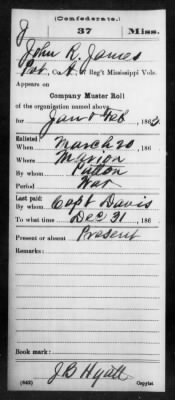 (Confederate.)
J 37 Miss.
John R. James
Pvt, Co. K, 37 Reg't Mississippi Vols.
Appears on
Company Muster Roll
of the organization named above,
for Jan & Feb, 186
Enlisted:
When March 20, 186
Where Marion
By whom Patton
Period War
Last paid:
By whom Capt Davis
To what time Dec 31, 186
Present or absent Present
Remarks:
Book mark:
J B Hyatt
(642) Copyist.